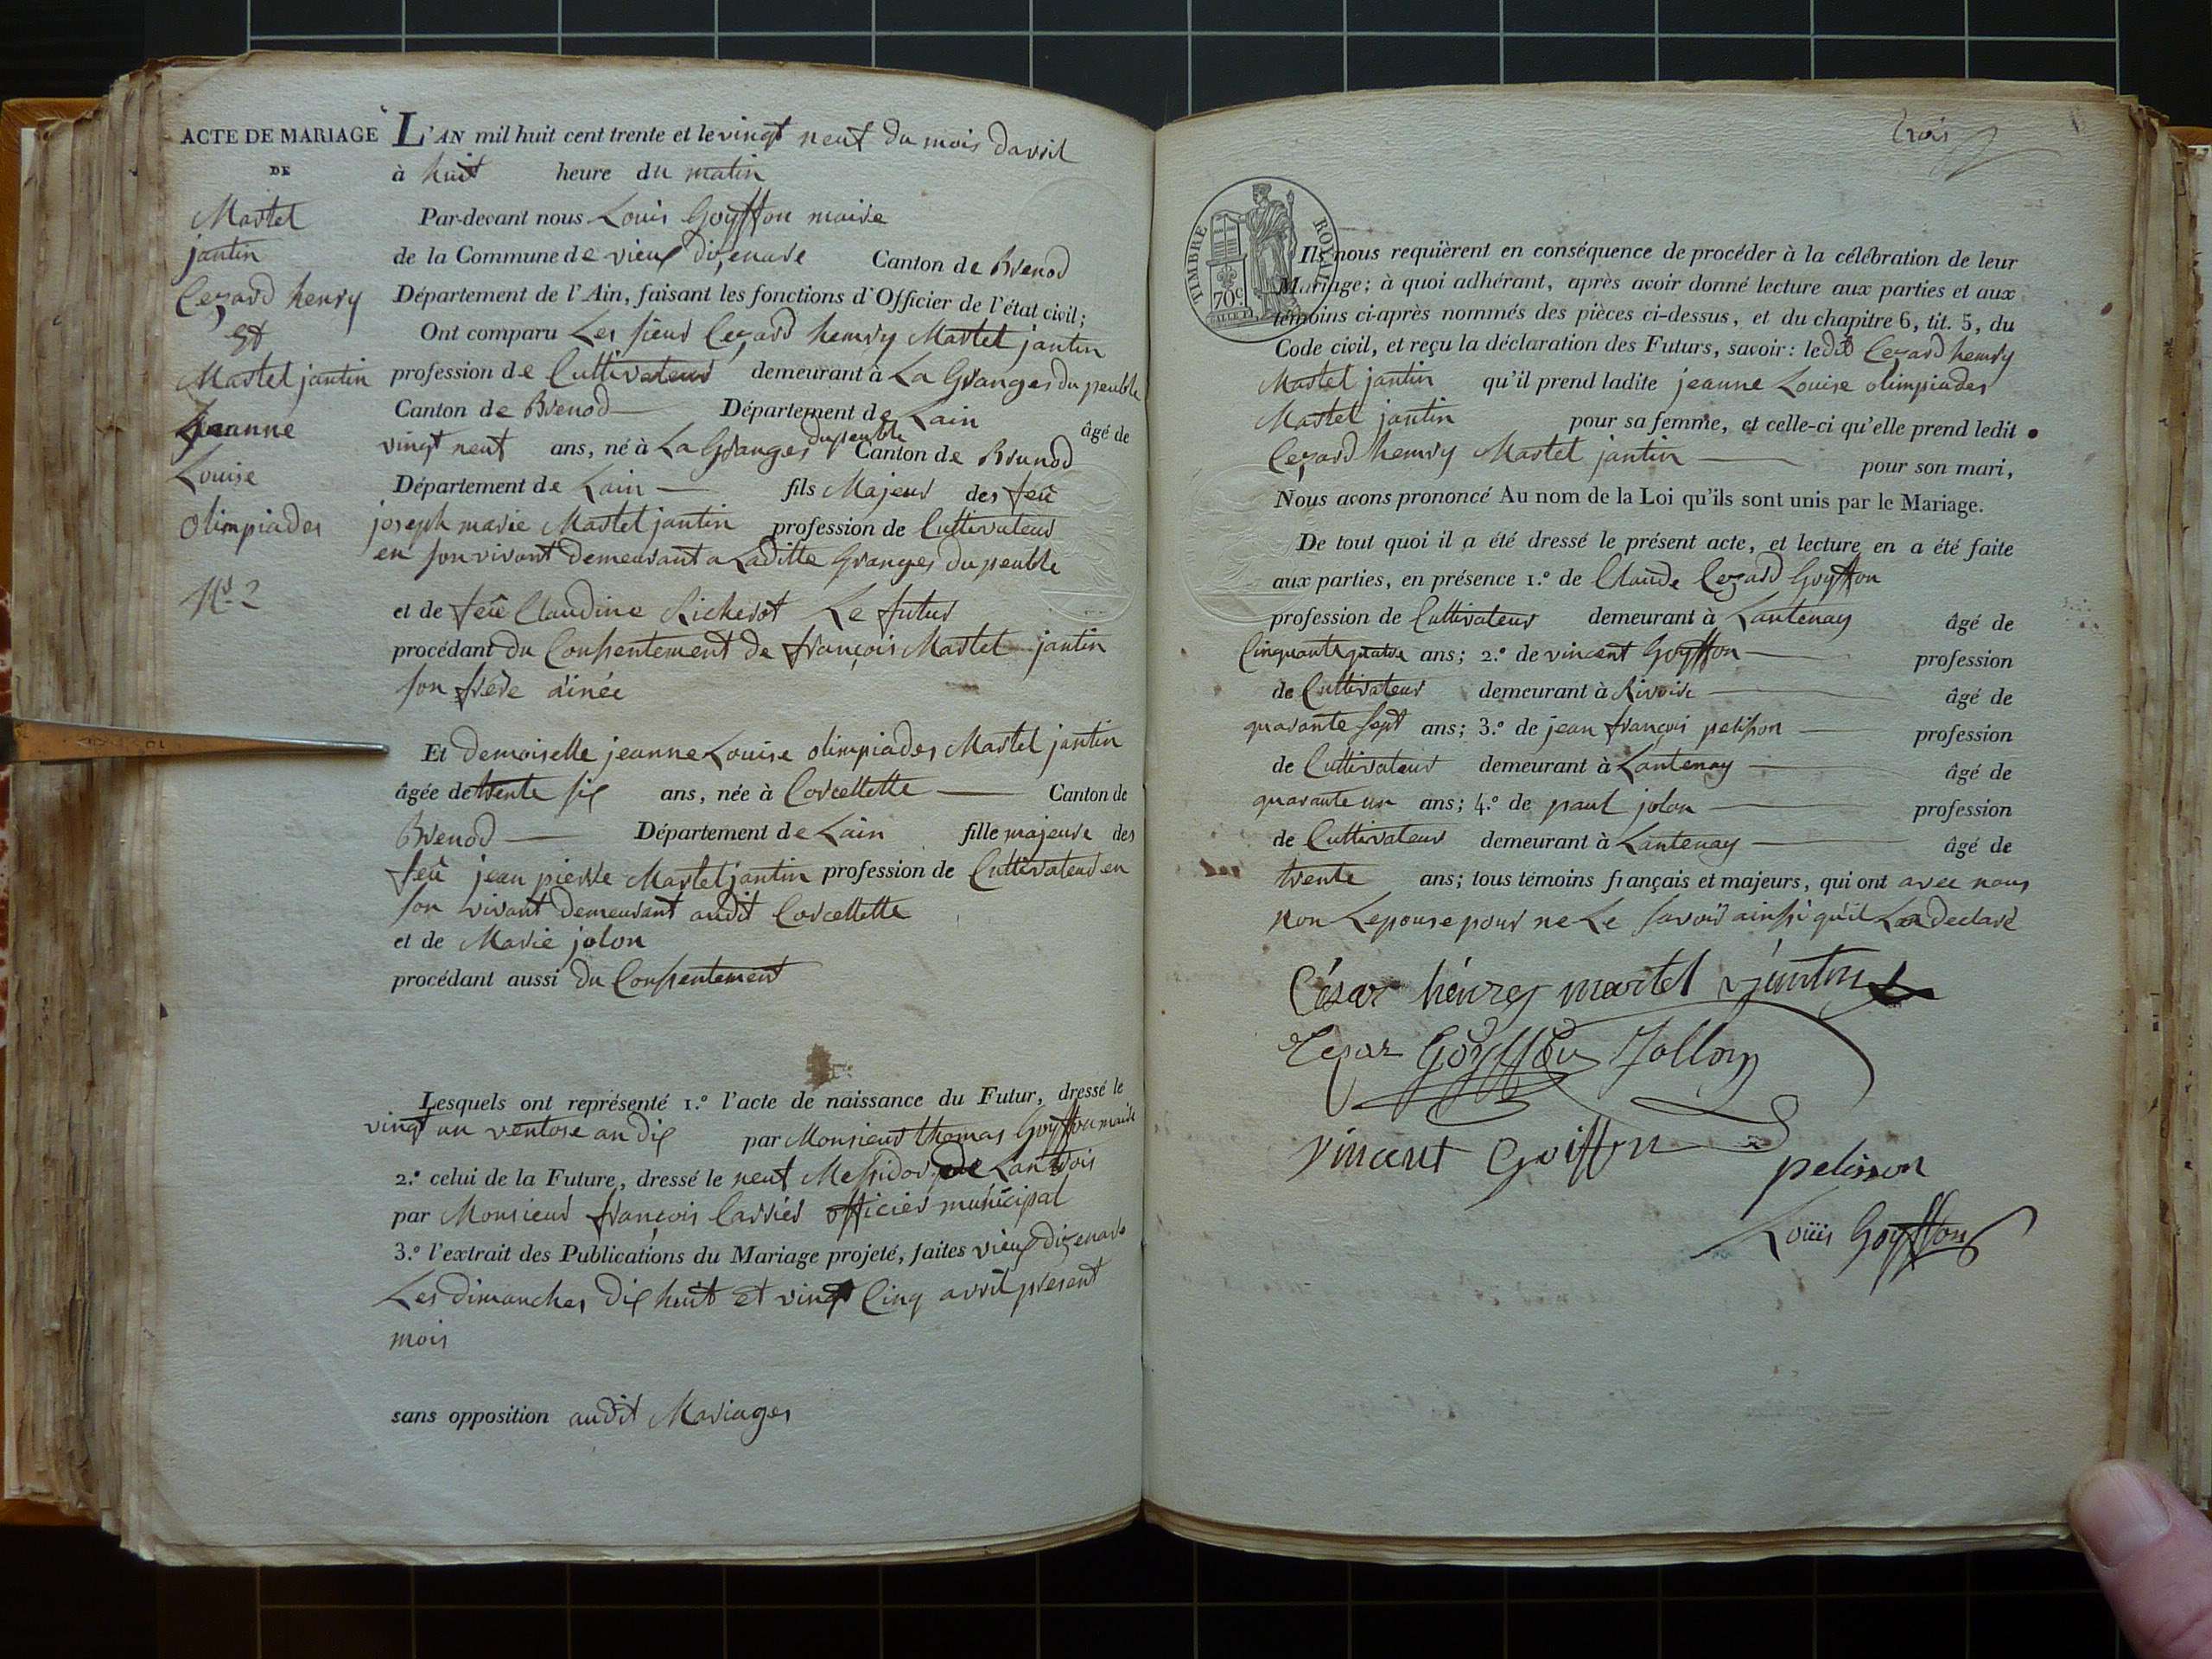 ACTE DE MARIAGE
DE
Martel
jantin
Cezard henry
Et
Martel jantin
Jeanne
Louise
Olimpiades
No 2
L'AN mil huit cent trente et le vingt neuf du mois davril
à huit heure du matin
Par-devant nous Louis Goyffon maire
de la Commune de vieux dizenave Canton de Brenod
Département de l'Ain, faisant les fonctions d'Officier de l'état civil;
Ont comparu Les sieur Cezard henry Martel jantin
profession de Cultivateur demeurant à La Granges du peuble
Canton de Brenod Département de Lain âgé de
vingt neuf ans, né à La Granges du peuble Canton de Brunod
Département de Lain fils Majeur des feû
joseph marie Martel jantin profession de Cultivateur
en son vivant demeurant a Laditte Granges du peuble
et de feû Claudine Richerot Le futur
procédant du Consentement de françois Martel jantin
son frere ainée
Et demoiselle jeanne Louise olimpiades Martel jantin
âgée de trente six ans, née à Corcellette Canton de
Brenod Département de Lain fille majeure des
feû jean pierre Martel jantin profession de Cultivateur en
son vivant demeurant audit Corcellette
et de Marie jolon
procédant aussi du Consentement
Lesquels ont représenté 1.° l'acte de naissance du Futur, dressé le
vingt un ventose an dix par Monsieur thomas Goyffon maire
2.° celui de la Future, dressé le neuf Messidor de Lan trois
par Monsieur françois Carrier officier municipal
3.° l'extrait des Publications du Mariage projeté, faites vieux dizenave
Les dimanches dix huit et vingt Cinq avril present
mois
sans opposition audit Mariages
trois
TIMBRE ROYAL
70c.
Ils nous requièrent en conséquence de procéder à la célébration de leur
Mariage; à quoi adhérant, après avoir donné lecture aux parties et aux
témoins ci-après nommés des pièces ci-dessus, et du chapitre 6, tit. 5, du
Code civil, et reçu la déclaration des Futurs, savoir: ledit Cezard henry
Martel jantin qu'il prend ladite jeanne Louise olimpiades
Martel jantin pour sa femme, et celle-ci qu'elle prend ledit
Cezard henry Martel jantin pour son mari,
Nous avons prononcé Au nom de la Loi qu'ils sont unis par le Mariage.
De tout quoi il a été dressé le présent acte, et lecture en a été faite
aux parties, en présence 1.° de Claude Cezard Goyffon
profession de Cultivateur demeurant à Lantenay âgé de
Cinquante quatre ans; 2.° de vincent Goyffon profession
de Cultivateur demeurant à Rivoire âgé de
quarante sept ans; 3.° de jean françois pelisson profession
de Cultivateur demeurant à Lantenay âgé de
quarante un ans; 4.° de paul jolon profession
de Cultivateur demeurant à Lantenay âgé de
trente ans; tous témoins français et majeurs, qui ont avec nous
non Lepouse pour ne Le savoir ainssi qu'il La declaré
César hénrey martel jantin
Cezar Goyffon Jollon
vincent Goiffon
pelisson
Loüis Goyffon